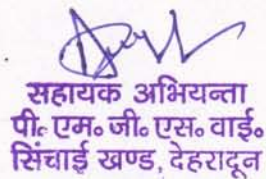 सहायक अभियन्ता
पी॰ एम॰ जी॰ एस॰ वाई॰
सिंचाई खण्ड, देहरादून